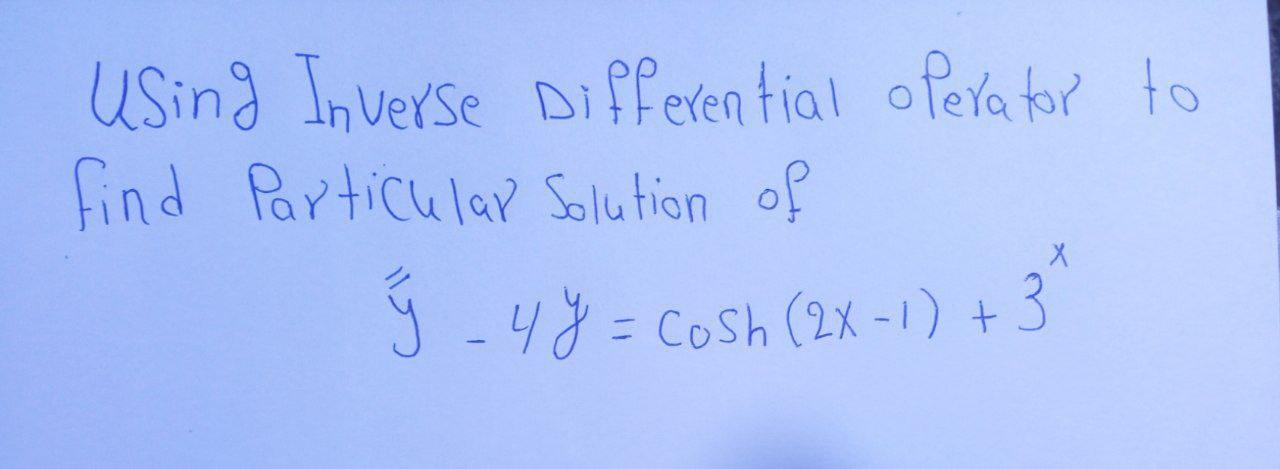 Using Inverse Differential operator to
find Particular Solution of
y'' - 4y = Cosh (2x - 1) + 3^x